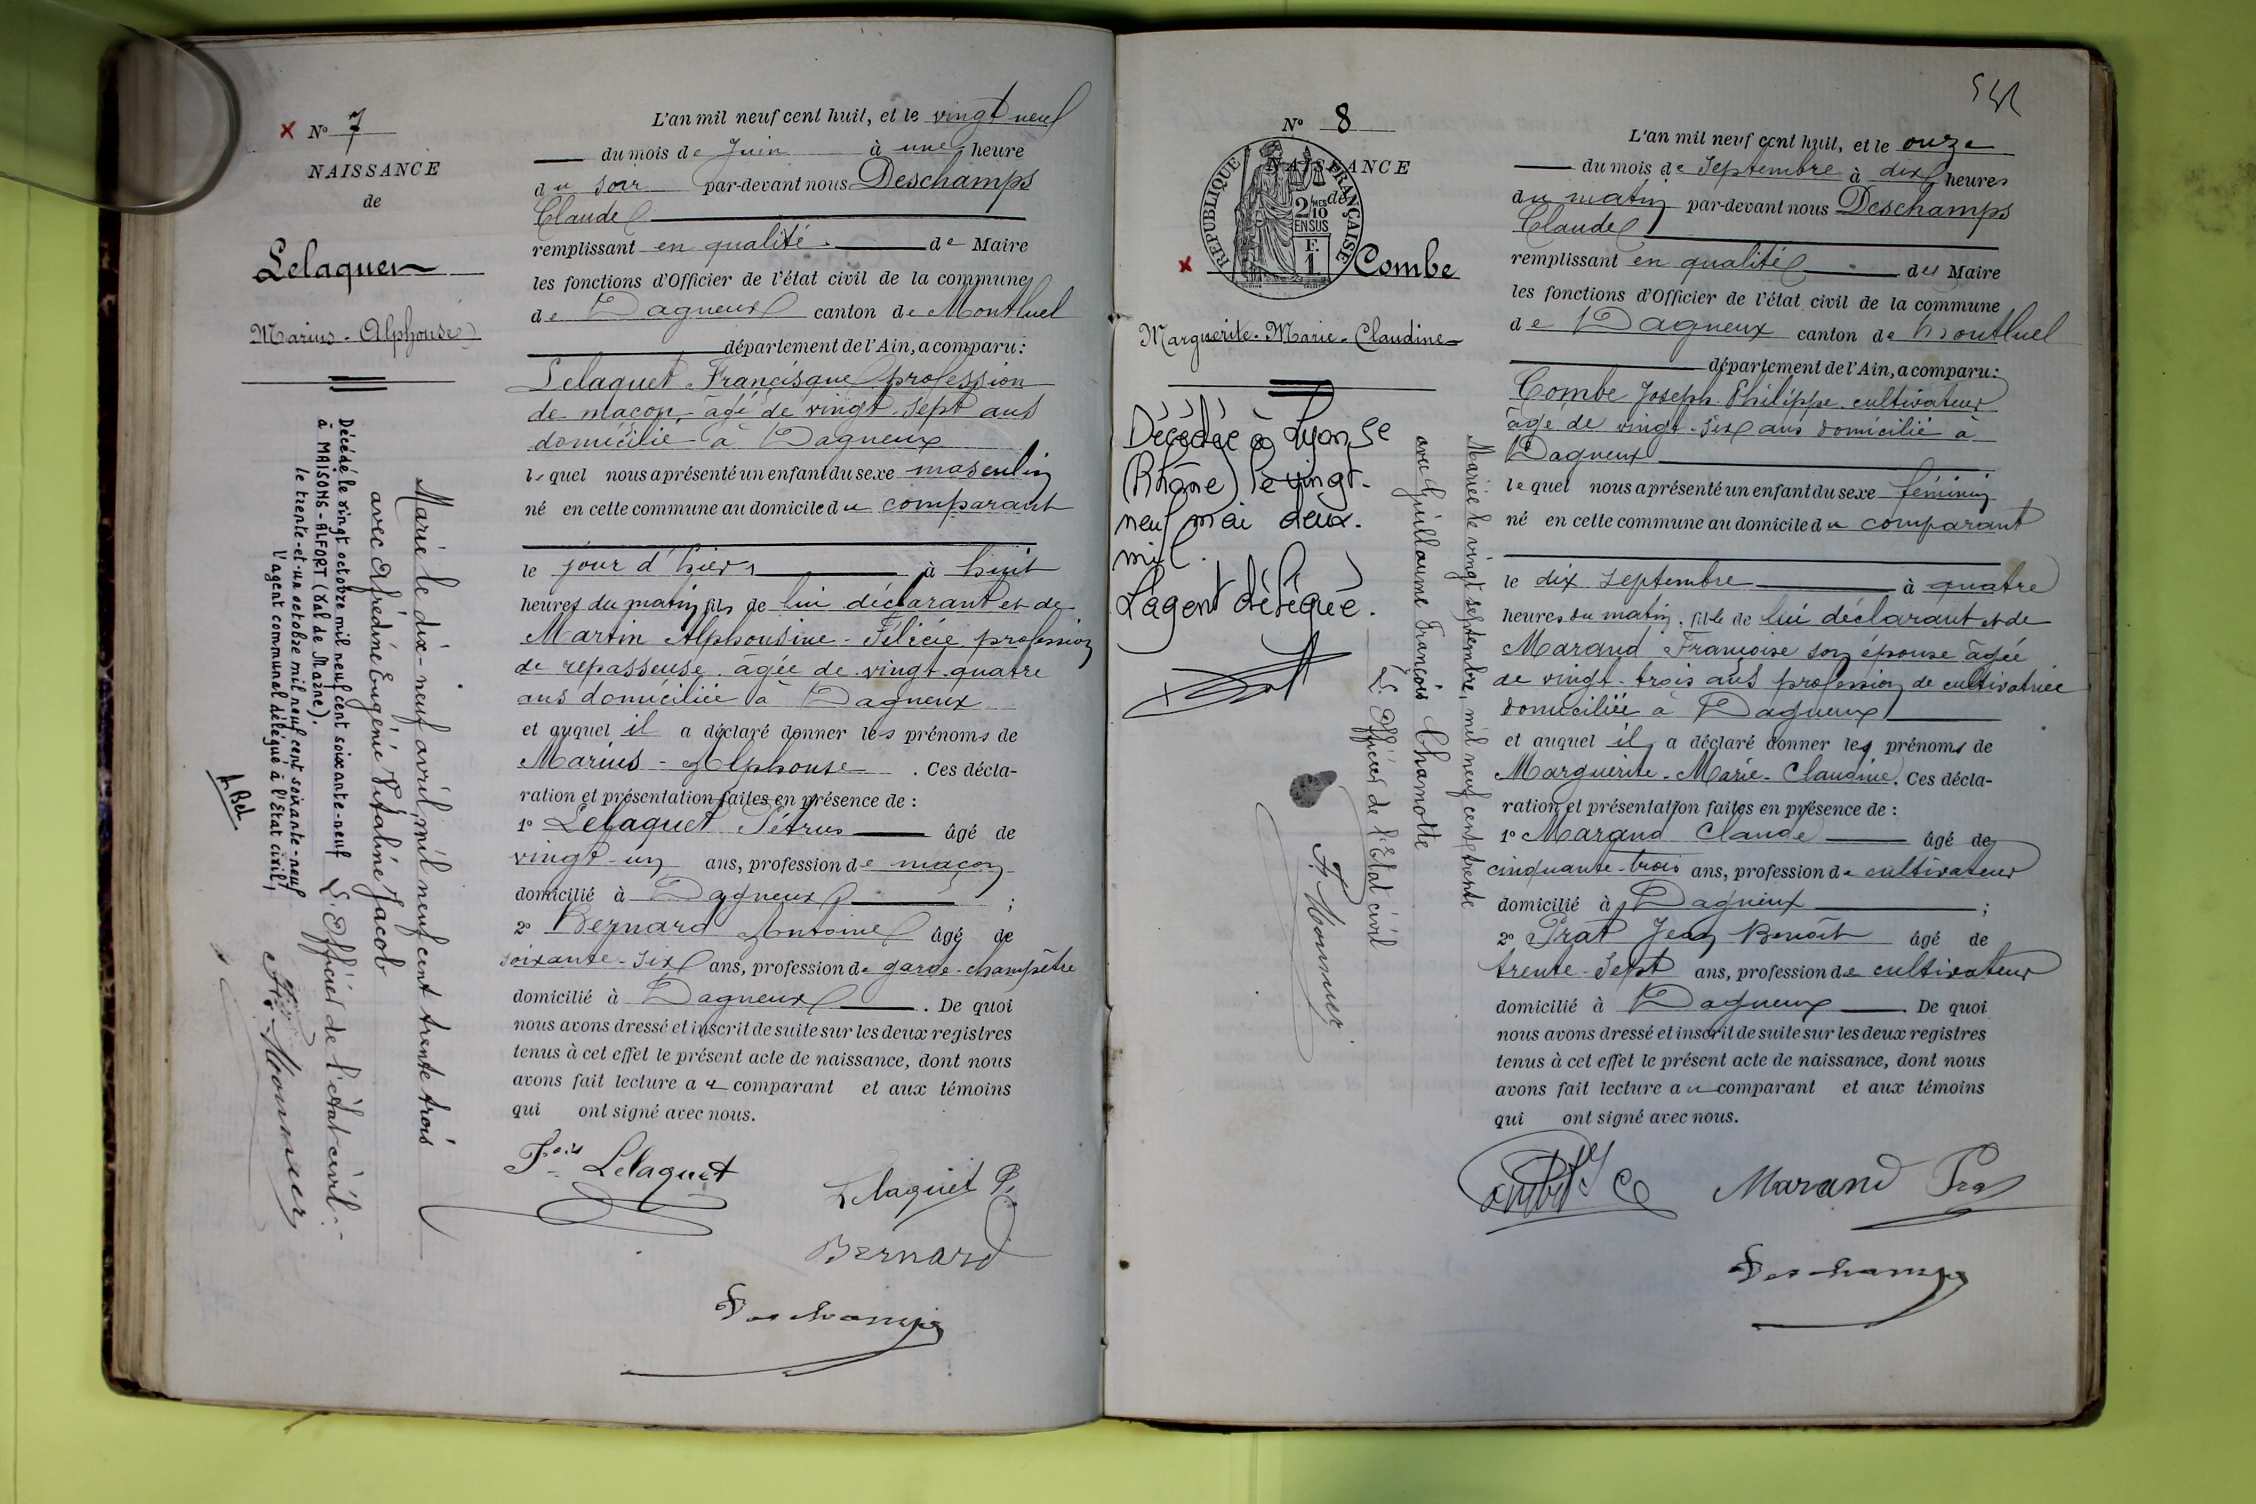 N° 7
NAISSANCE
de
Lelaquet
Marius-Alphonse
Marié le dix-neuf avril, mil neuf cent trente trois
avec Afrédine Eugénie Vitaline Jacob
L'Officier de l'état civil.
F. Monnier
Décédé le vingt octobre mil neuf cent soixante-neuf
à MAISONS-ALFORT (Val de Marne).
le trente-et-un octobre mil neuf cent soixante-neuf
l'agent communal délégué à l'Etat civil,
L'an mil neuf cent huit, et le vingt neuf
du mois de Juin à une heure
du soir par-devant nous Deschamps
Claude
remplissant en qualité de Maire
les fonctions d'Officier de l'état civil de la commune
de Dagneux canton de Montluel
département de l'Ain, a comparu:
Lelaquet Francisque profession
de maçon âgé de vingt-sept ans
domicilié à Dagneux
lequel nous a présenté un enfant du sexe masculin
né en cette commune au domicile du comparant
le jour d'hier à huit
heures du matin fils de lui déclarant et de
Martin Alphonsine-Félicie profession
de repasseuse âgée de vingt-quatre
ans domiciliée à Dagneux
et auquel il a déclaré donner les prénoms de
Marius-Alphonse. Ces décla-
ration et présentation faites en présence de:
1° Lelaquet Pétrus âgé de
vingt-un ans, profession de maçon
domicilié à Dagneux;
2° Bernard Antoine âgé de
soixante-six ans, profession de garde-champêtre
domicilié à Dagneux. De quoi
nous avons dressé et inscrit de suite sur les deux registres
tenus à cet effet le présent acte de naissance, dont nous
avons fait lecture au comparant et aux témoins
qui ont signé avec nous.
Fois Lelaquet
Lelaquet P.
Bernard
Deschamps
N° 8
NAISSANCE
de
RÉPUBLIQUE FRANÇAISE
2/10 MES
EN SUS
F.
1
Combe
Marguerite-Marie-Claudine
Décédée à Lyon 8e
(Rhône) le vingt-
neuf mai deux-
mil.
L'agent délégué.
Mariée le vingt septembre, mil neuf cent trente
avec Guillaume François Chamotte
L'Officier de l'Etat civil
F. Monnier
L'an mil neuf cent huit, et le onze
du mois de Septembre à dix heures
du matin par-devant nous Deschamps
Claude
remplissant en qualité de Maire
les fonctions d'Officier de l'état civil de la commune
de Dagneux canton de Montluel
département de l'Ain, a comparu:
Combe Joseph-Philippe cultivateur
âgé de vingt-six ans domicilié à
Dagneux
lequel nous a présenté un enfant du sexe féminin
né en cette commune au domicile du comparant
le dix Septembre à quatre
heures du matin, fille de lui déclarant et de
Marand Françoise son épouse âgée
de vingt-trois ans profession de cultivatrice
domiciliée à Dagneux
et auquel il a déclaré donner les prénoms de
Marguerite-Marie-Claudine. Ces décla-
ration et présentation faites en présence de:
1° Marand Claude âgé de
cinquante-trois ans, profession de cultivateur
domicilié à Dagneux;
2° Prat Jean Benoît âgé de
trente-sept ans, profession de cultivateur
domicilié à Dagneux. De quoi
nous avons dressé et inscrit de suite sur les deux registres
tenus à cet effet le présent acte de naissance, dont nous
avons fait lecture au comparant et aux témoins
qui ont signé avec nous.
Marand Prat
Deschamps